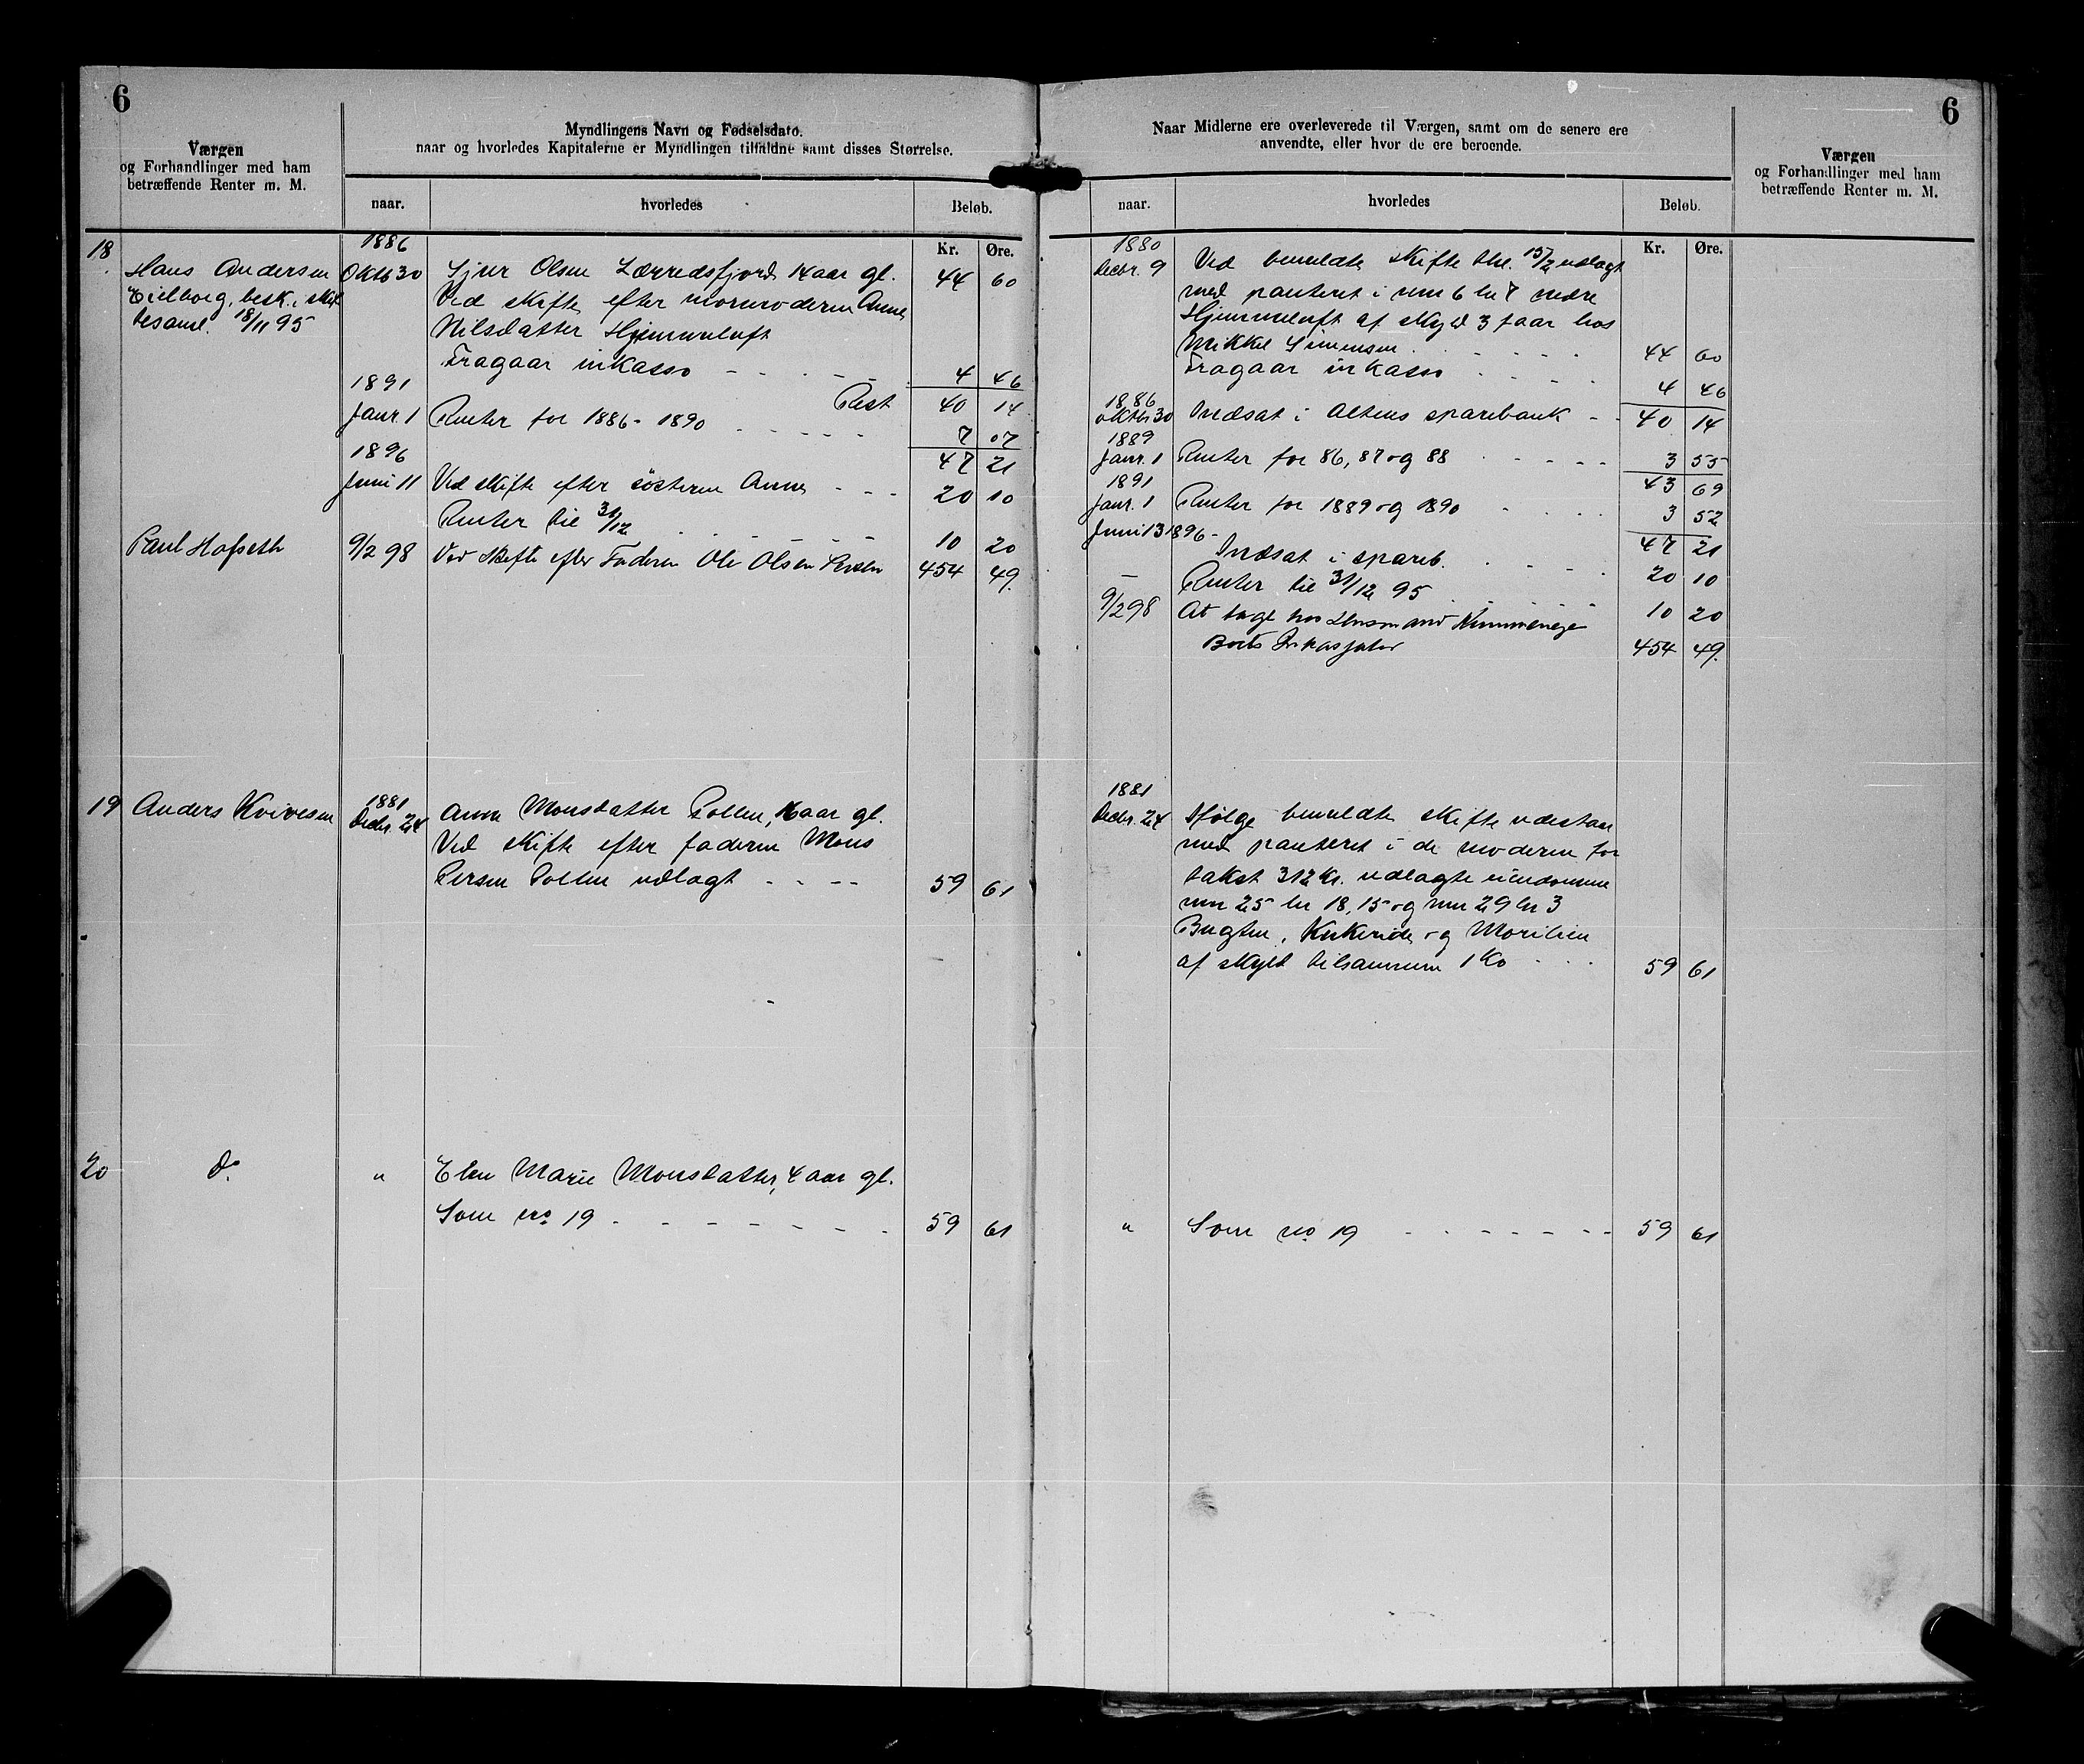 6
Værgen
og Forhandlinger med ham
betræffende Renter m. M.
Myndlingens Navn og Fødselsdato.
naar og hvorledes Kapitalerne er Myndlingen tilfaldne samt disses Størrelse.
naar.
hvorledes
Beløb.
Kr. Øre.
18.
Hans Andersen
besk. i skif
tesaml. 18/11 95
1886
Oktb 30 Sjur Olsen Lerredsfjord 14 aar gl. 44 60
Ved skifte efter mormoderen Anne
Nilsdatter Hjemmeluft
Fragaar inkasso - - - - 4 46
Rest 40 14
1891
Janr. 1 Renter for 1886-1890 - - - - - 7 07
47 21
1896
Juni 11 Ved skifte efter søsteren Anne - - - 20 10
Renter til 31/12 - - - - - - 10 20
Paul Hofseth 9/2 98 Ved skifte efter Faderen Ole Olsen 454 49.
19 Anders Kvivesen
1881
Decbr. 24 Anne Monsdatter Pollen, 16 aar gl.
Ved skifte efter faderen Mons
Persen Pollen udlagt - - - - 59 61
20 do. " Elen Marie Monsdatter, 4 aar gl.
Som no 19 - - - - - - - - 59 61
6
Naar Midlerne ere overleverede til Værgen, samt om de senere ere
anvendte, eller hvor de ere beroende.
naar.
hvorledes
Beløb.
Værgen
og Forhandlinger med ham
betræffende Renter m. M.
Kr. Øre.
1880
Decbr. 9 Ved bemeldte skifte 15/2 udlagt
med panteret i mno 6 lno 7 nedre
Hjemmeluft af skyld 3 faar hos
Mikkel Simensen - - - - 44 60
Fragaar inkasso - - - - 4 46
1886
oktbr 30 Indsat i Altens sparebank - - 40 14
1889
Janr. 1 Renter for 86, 87 og 88 - - - - 3 55
43 69
1891
Janr. 1 Renter for 1889 og 1890 - - - - 3 52
47 21
Juni 13 1896 -
Indsat i spareb. - - - - 20 10
— Renter til 31/12 95 - - - - - 10 20
9/2 98 At tage hos Lensmand
454 49.
1881
Decbr. 24 Ifølge bemeldte skifte udestaar
med panteret i de moderen for
takst 312 Kr. udlagte eiendomme
mno 25 lno 18, 15 og mno 29 lno 3
Bugten, og
af skyld tilsammen 1 Ko - - - 59 61
" Som no 19 - - - - - - - 59 61